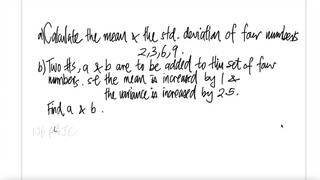 a) Calculate the mean & the std. deviation of four numbers
2, 3, 6, 9.
b) Two #s, a & b are to be added to this set of four
numbers. s.t the mean is increased by 1 &
the variance is increased by 2.5.
Find a & b.